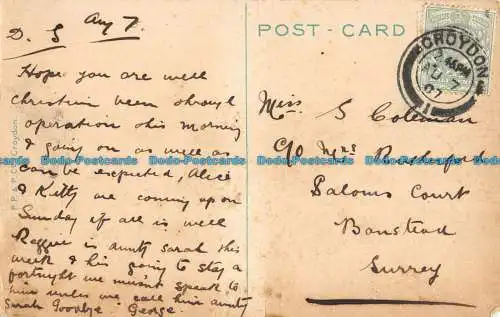 Aug 7.
D. S
Hope you are well
Christien been through
operation this morning
& going on as well as
can be expected, Alice
& Kitty are coming up on
Sunday if all is well
Reggie is aunty Sarah this
week & his going to stay a
fortnight we musnt speak to
him unless we call him aunty
Sarah Goodbye. George.
POST - CARD
CROYDON
AU 7
07
Miss S Coleman
C/O Mrs
Saloms Court
Banstead
Surrey
Croydon.
Dodo-Postcards Dodo-Postcards Dodo-Postcards Dodo-Postcards Dodo-Postcards